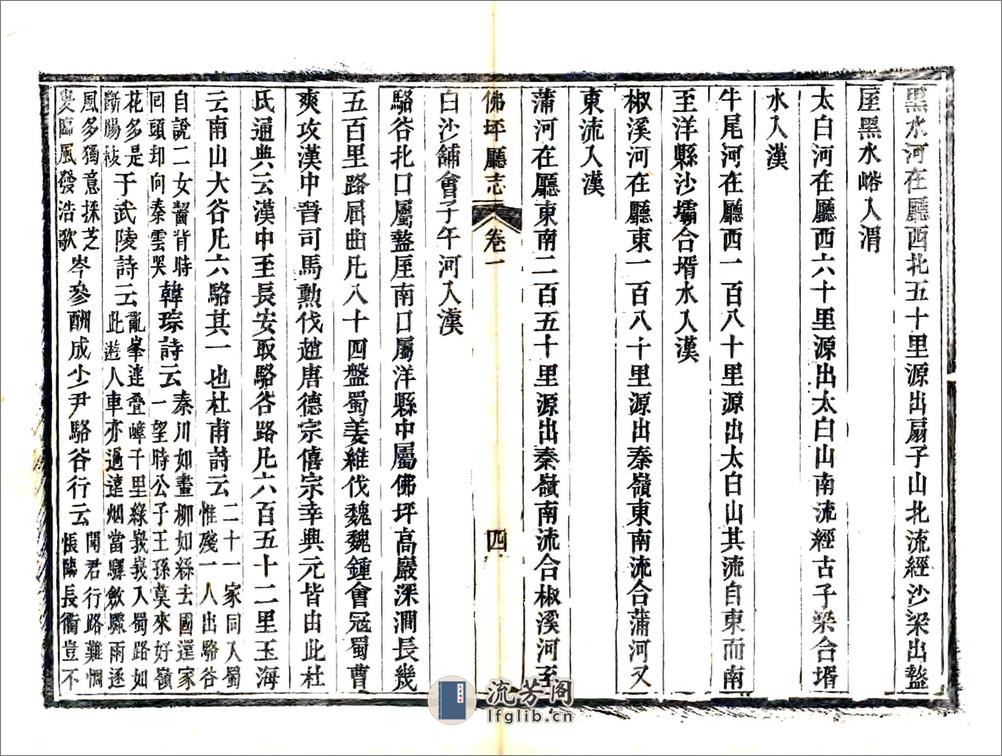 黑水河在廳西北五十里源出扇子山北流經沙梁出盩
厔黑水峪入渭
太白河在廳西六十里源出太白山南流經古子梁合壻
水入漢
牛尾河在廳西一百八十里源出太白山其流自東而南
至洋縣沙壩合壻水入漢
椒溪河在廳東一百八十里源出秦嶺東南流合蒲河又
東流入漢
蒲河在廳東南二百五十里源出秦嶺南流合椒溪河至
佛坪廳志 卷一 四
白沙舖會子午河入漢
駱谷北口屬盩厔南口屬洋縣中屬佛坪高巖深澗長幾
五百里路屈曲凡八十四盤蜀姜維伐魏魏鍾會冦蜀曹
爽攻漢中晉司馬勲伐趙唐德宗僖宗幸興元皆由此杜
氏通典云漢中至長安取駱谷路凡六百五十二里玉海
云南山大谷凡六駱其一也杜甫詩云二十一家同入蜀
惟殘一人出駱谷
自說二女齧背時
囘頭却向秦雲哭韓琮詩云秦川如畫柳如絲去國還家
一望時公子王孫莫來好嶺
花多是
斷腸枝于武陵詩云亂峯連疊嶂千里綠峩峩入蜀路如
此遊人車亦過遠烟當驛歛驟雨逐
風多獨憶採芝
叟臨風發浩歌岑參酬成少尹駱谷行云聞君行路難惆
悵臨長衢豈不
流芳阁
lfglib.cn